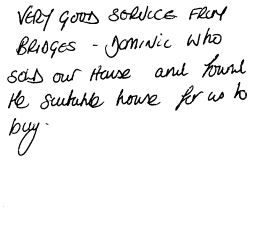 VERY GOOD SERVICE FROM
BRIDGES - DOMINIC WHO
SOLD our House and found
the suitable house for us to
buy.